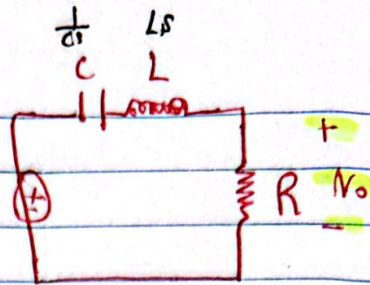 1/cs Ls
C L
+
± R No
−